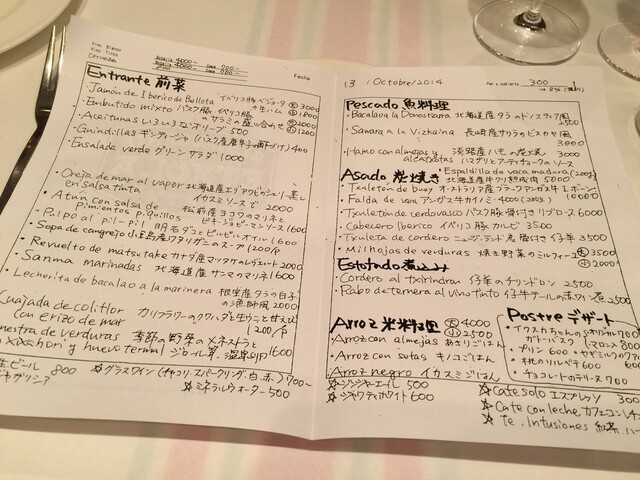 Vino Blanco
Vino Tinto
Cerveza
Botella 4000~ Copa 700~
Botella 4000~ Copa 700~
Fecha
Entrante 前菜
・Jamón de Iberico de Bellota イベリコ豚ベジョータの生ハム 大 3000
・Embutido mixto バスク豚 イベリコ豚のサラミの盛り合わせ 大 2000 小 1200
・Aceitunas いろいろなオリーブ 500
・Guindillas ギンディージャ(バスク産唐辛子の酢づけ) 400
・Ensalada verde グリーンサラダ 1000
・Oreja de mar al vapor 北海道産エゾアワビのシェリー蒸し
en salsa tinta イカスミソースで 2000
・Atún con salsa de 松前産ヨコワのマリネ
pimientos piquillos ピキージョピーマンソース 1600
・Pulpo al pil-pil 明石ダコとピルピルオイル 1600
・Sopa de cangrejo 小豆島産ワタリガニのスープ 1200/P
・Revuelto de matsutake カナダ産マツタケのレブエルト 2000
・Sanma marinadas 北海道産サンマのマリネ 1600
・Lecheritas de bacalao a la marinera 根室産タラの白子の漁師風 2000
Cuajada de coliflor カリフラワーのクワハダと生ウニと甘えび
con erizo de mar 1200/P
menestra de verduras 季節の野菜のメネストラと
xixahori y huevo termal ジロール茸、温泉卵 1600
生ビール 800
☆グラスワイン (チャコリ.スパークリング.白.赤) 700~
☆ミネラルウォーター 500
13 / Octobre / 2014
Pan y cubierto 300
Pescado 魚料理
・Bacalao a la Donostiarra 北海道産タラのドノスティア風 2500
・Sawara a la Vizkaina 長崎産サワラのビスカヤ風 3000
・Hamo con almejas y 淡路産ハモの炭焼き 3000
alcachofas ハマグリとアーティチョークのソース
Asado 炭焼き
・Espaldilla de vaca madura(200g) 北海道産牛ウデ熟成肉 5000
・Txuleton de buey オーストラリア産ブラックアンガス牛Tボーン 10000
・Falda de vaca アンガス牛カイノミ 4000(200g)
・Txuleton de cerdo vasco バスク豚骨付きリブロース 6000
・Cabecero Iberico イベリコ豚カルビ 3500
・Txuleta de cordero ニュージーランド産骨付き仔羊 3500
・Milhojas de verduras 焼き野菜のミルフィーユ 大 3500 小 2000
Estofado 煮込み
・Cordero al txirindron 仔羊のチリンドロン 2500
・Rabo de ternera al vino tinto 仔牛テールの赤ワイン煮 2500
Arroz 米料理 大 4000 小 2500
・Arroz con almejas あさりごはん
・Arroz con setas キノコごはん
・Arroz negro イカスミごはん
Postre デザート
・イクスカちゃんの
ガトーバスク
・プリン 600
・桃のソルベテ 600
・チョコレートのテリーヌ 700
☆ジンジャーエール 500
☆ジネワティホワイト 600
☆Cafe solo エスプレッソ
☆Cafe con leche カフェコンレチェ
☆Te. Intusiones 紅茶.ハー